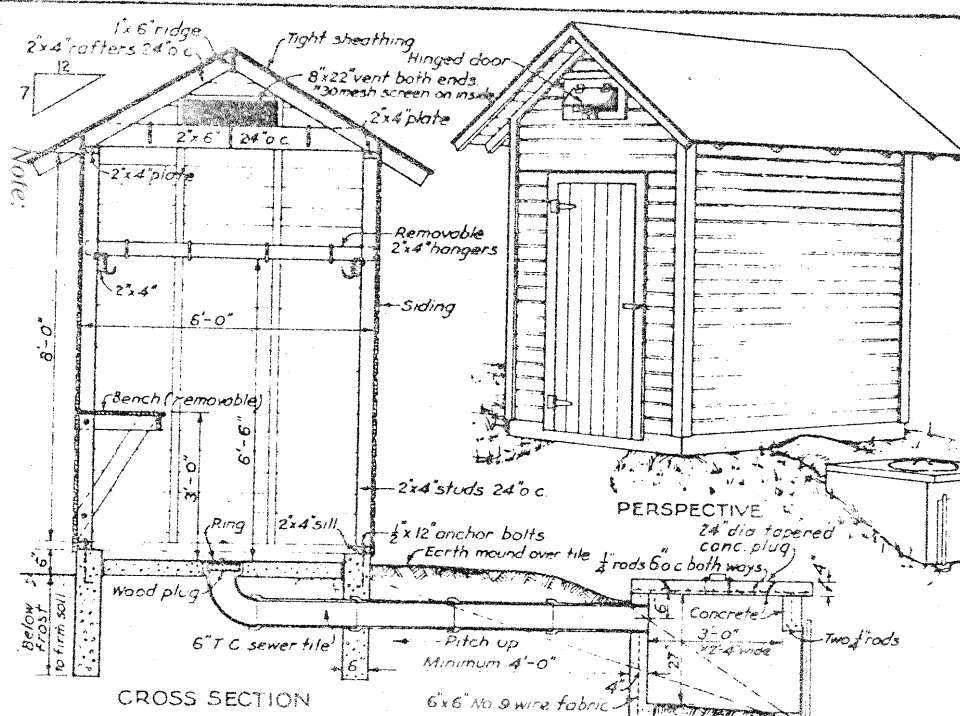 1"x 6" ridge
2"x4" rafters 24" o c.
Tight sheathing
Hinged door
12
7
8"x22" vent both ends.
"30 mesh screen on inside
2"x4" plate
2"x 6" 24" o c.
Note:
2"x4" plate
Removable
2"x4" hangers
2"x4"
Siding
6'-0"
8'-0"
Bench (removable)
6'-6"
3'-0"
2"x4" studs 24" o c.
PERSPECTIVE
Ring
2"x4" sill
½"x 12" anchor bolts
24" dia tapered
conc. plug
Earth mound over tile
¼" rods 6" o c both ways
4"
6"
2"
Wood plug
Concrete
6"
3'-0"
x2'-4" wide
Two ¼" rods
Below
frost
to firm soil
6" T C sewer tile
Pitch up
Minimum 4'-0"
27"
6"
4"
CROSS SECTION
6"x 6" No. 9 wire fabric